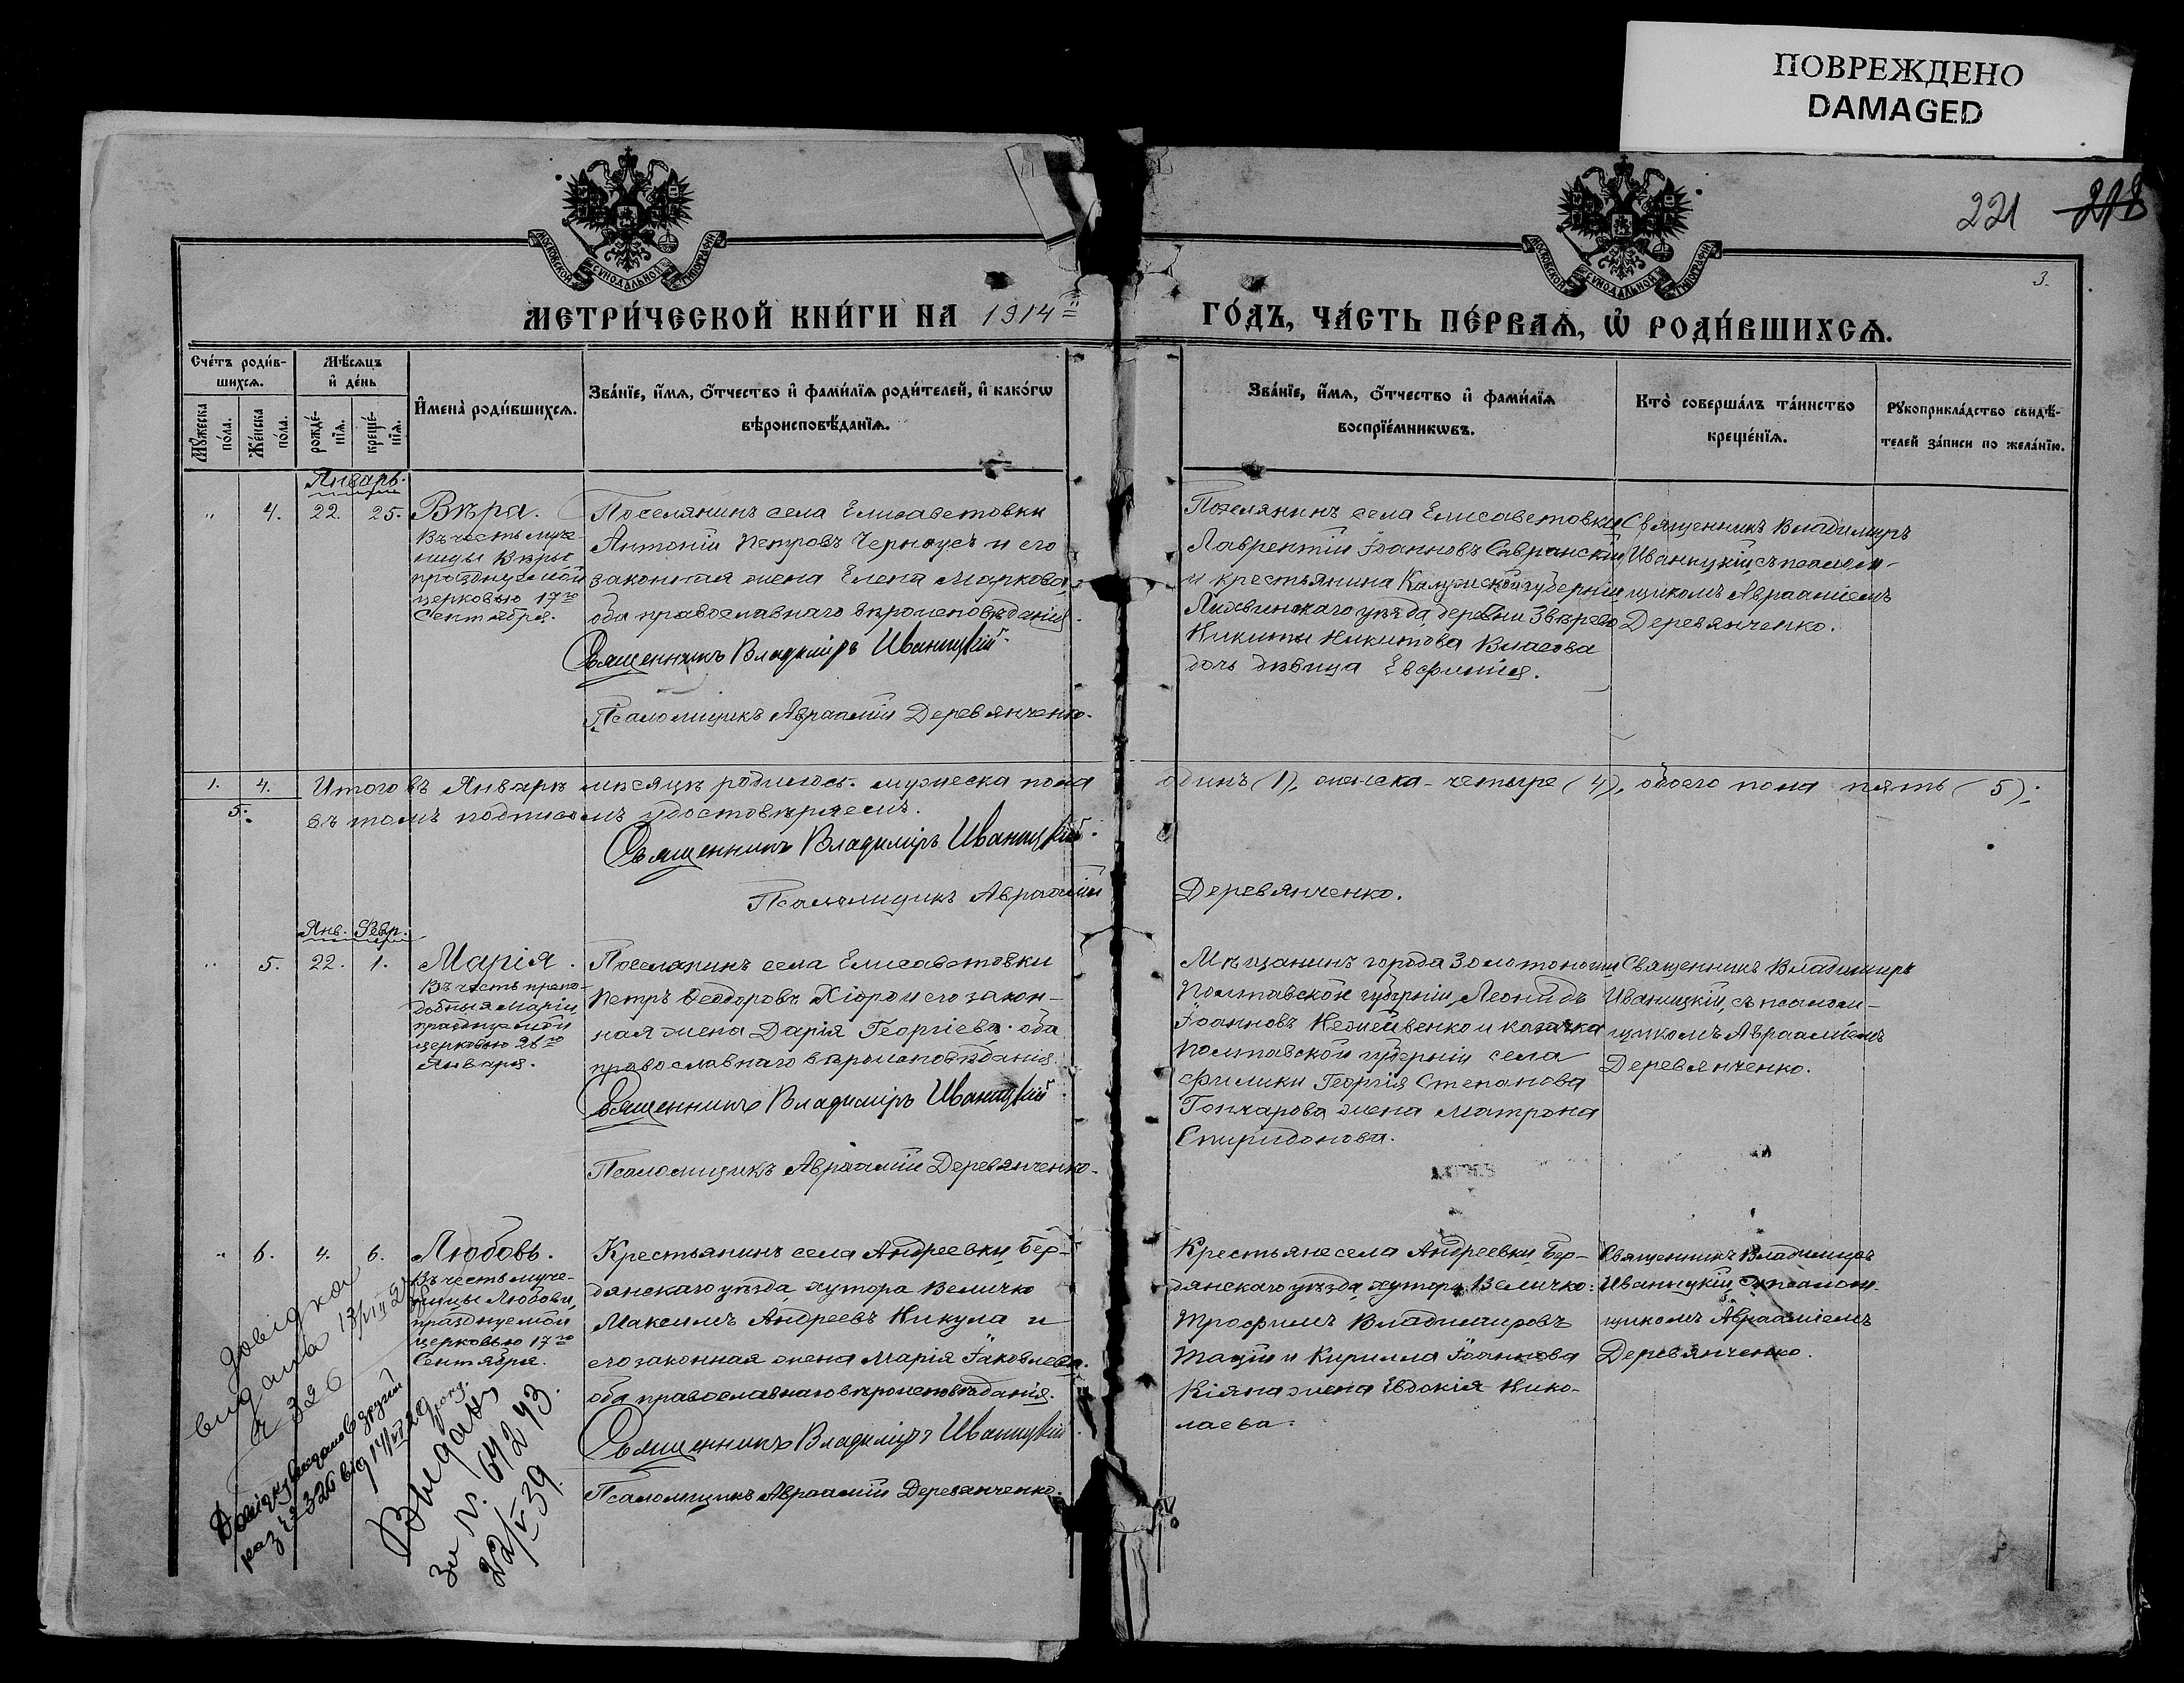 ПОВРЕЖДЕНО
DAMAGED
221 218
3.
МОСКОВСКОЙ СУНОДАЛЬНОЙ ТИПОГРАФІИ
МОСКОВСКОЙ СУНОДАЛЬНОЙ ТИПОГРАФІИ
МЕТРИ́ЧЕСКОЙ КНИ́ГИ НА 1914й
ГО́ДЪ, ЧА́СТЬ ПЕ́РВАѦ, Ѡ҆ РОДИ́ВШИХСѦ.
Сче́тъ роди́в-
шихсѧ.
Мꙋ́жеска по́ла.
Же́нска по́ла.
Мѣ́сяцъ
и҆ де́нь
рожде́-
нїѧ.
креще́-
нїѧ.
И҆мена̀ роди́вшихсѧ.
Зва́нїе, и҆́мѧ, ѻ҆́тчество и҆ фами́лїѧ роди́телей, и҆ како́гѡ
вѣроисповѣ́данїѧ.
Зва́нїе, и҆́мѧ, ѻ҆́тчество и҆ фами́лїѧ
воспрїе́мникѡвъ.
Кто̀ соверша́лъ та́инство
креще́нїѧ.
Рꙋкоприкла́дство свидѣ́-
телей за́писи по жела́нїю.
Январь.
" 4. 22. 25. Вѣра.
Въ честь муче-
ницы Вѣры
празднуемой
церковью 17го
Сентября.
Поселянинъ села Елисаветовки
Антоній Петровъ Черноусъ и его
законная жена Елена Маркова,
оба православнаго вѣроисповѣданія.
Священникъ Владиміръ Иваницкій.
Псаломщикъ Авраамій Деревянченко.
Поселянинъ села Елисаветовки
Лаврентій Іоанновъ Савранскій
и крестьянина Калужской губерніи
Лихвинскаго уѣзда, деревни Звѣрево
Никиты Никитова Власова
дочь дѣвица Евфимія.
Священникъ Владимиръ
Иваницкій, съ псалом-
щикомъ Авраамiемъ
Деревянченко.
1. 4.
5.
Итого въ Январѣ мѣсяцѣ родилось. мужеска пола
одинъ (1), женска - четыре (4), обоего пола пять (5);
въ томъ подписомъ удостовѣряемъ.
Священникъ Владиміръ Иваницкій.
Псаломщикъ Авраамій
Деревянченко.
Янв. Февр.
" 5. 22. 1. Марія.
Въ честь препо-
добныя Маріи
празднуемой
церковью 26го
Января.
Поселянинъ села Елисаветовки
Петръ Феодоровъ Хіоро и его закон-
ная жена Дарія Георгіева. оба
православнаго вѣроисповѣданія.
Священникъ Владиміръ Иваницкій.
Псаломщикъ Авраамій Деревянченко.
Мѣщанинъ города Золотоноши
Полтавской губерніи, Леонидъ
Іоанновъ и казачка
Полтавской губерніи села
Георгія Степанова
Гончарова жена Матрона
Спиридонова.
Священникъ Владимиръ
Иваницкій, съ псалом-
щикомъ Авраамiемъ
Деревянченко.
" 6. 4. 6. Любовь.
Въ честь муче-
ницы Любови,
празднуемой
церковью 17го
Сентября.
Крестьянинъ села Андреевки Бер-
дянскаго уѣзда хутора Величко
Максимъ Андреевъ Никула и
его законная жена Марія Іаковлева.
оба православнаго вѣроисповѣданія.
Священникъ Владиміръ Иваницкій
Псаломщикъ Авраамій Деревянченко.
Крестьяне села Андреевки Бер-
дянскаго уѣзда хутора Величко:
Трофимъ Владимировъ
Тацій и Кирилла Іоаннова
Кіяна жена Евдокія Нико-
лаева.
Священникъ Владимиръ
Иваницкій, съ псалом-
щикомъ Авраамiемъ
Деревянченко.
довідка
видана
№ 326
раз № 326 від
Выдан
за N. 641243.
22/V-39.